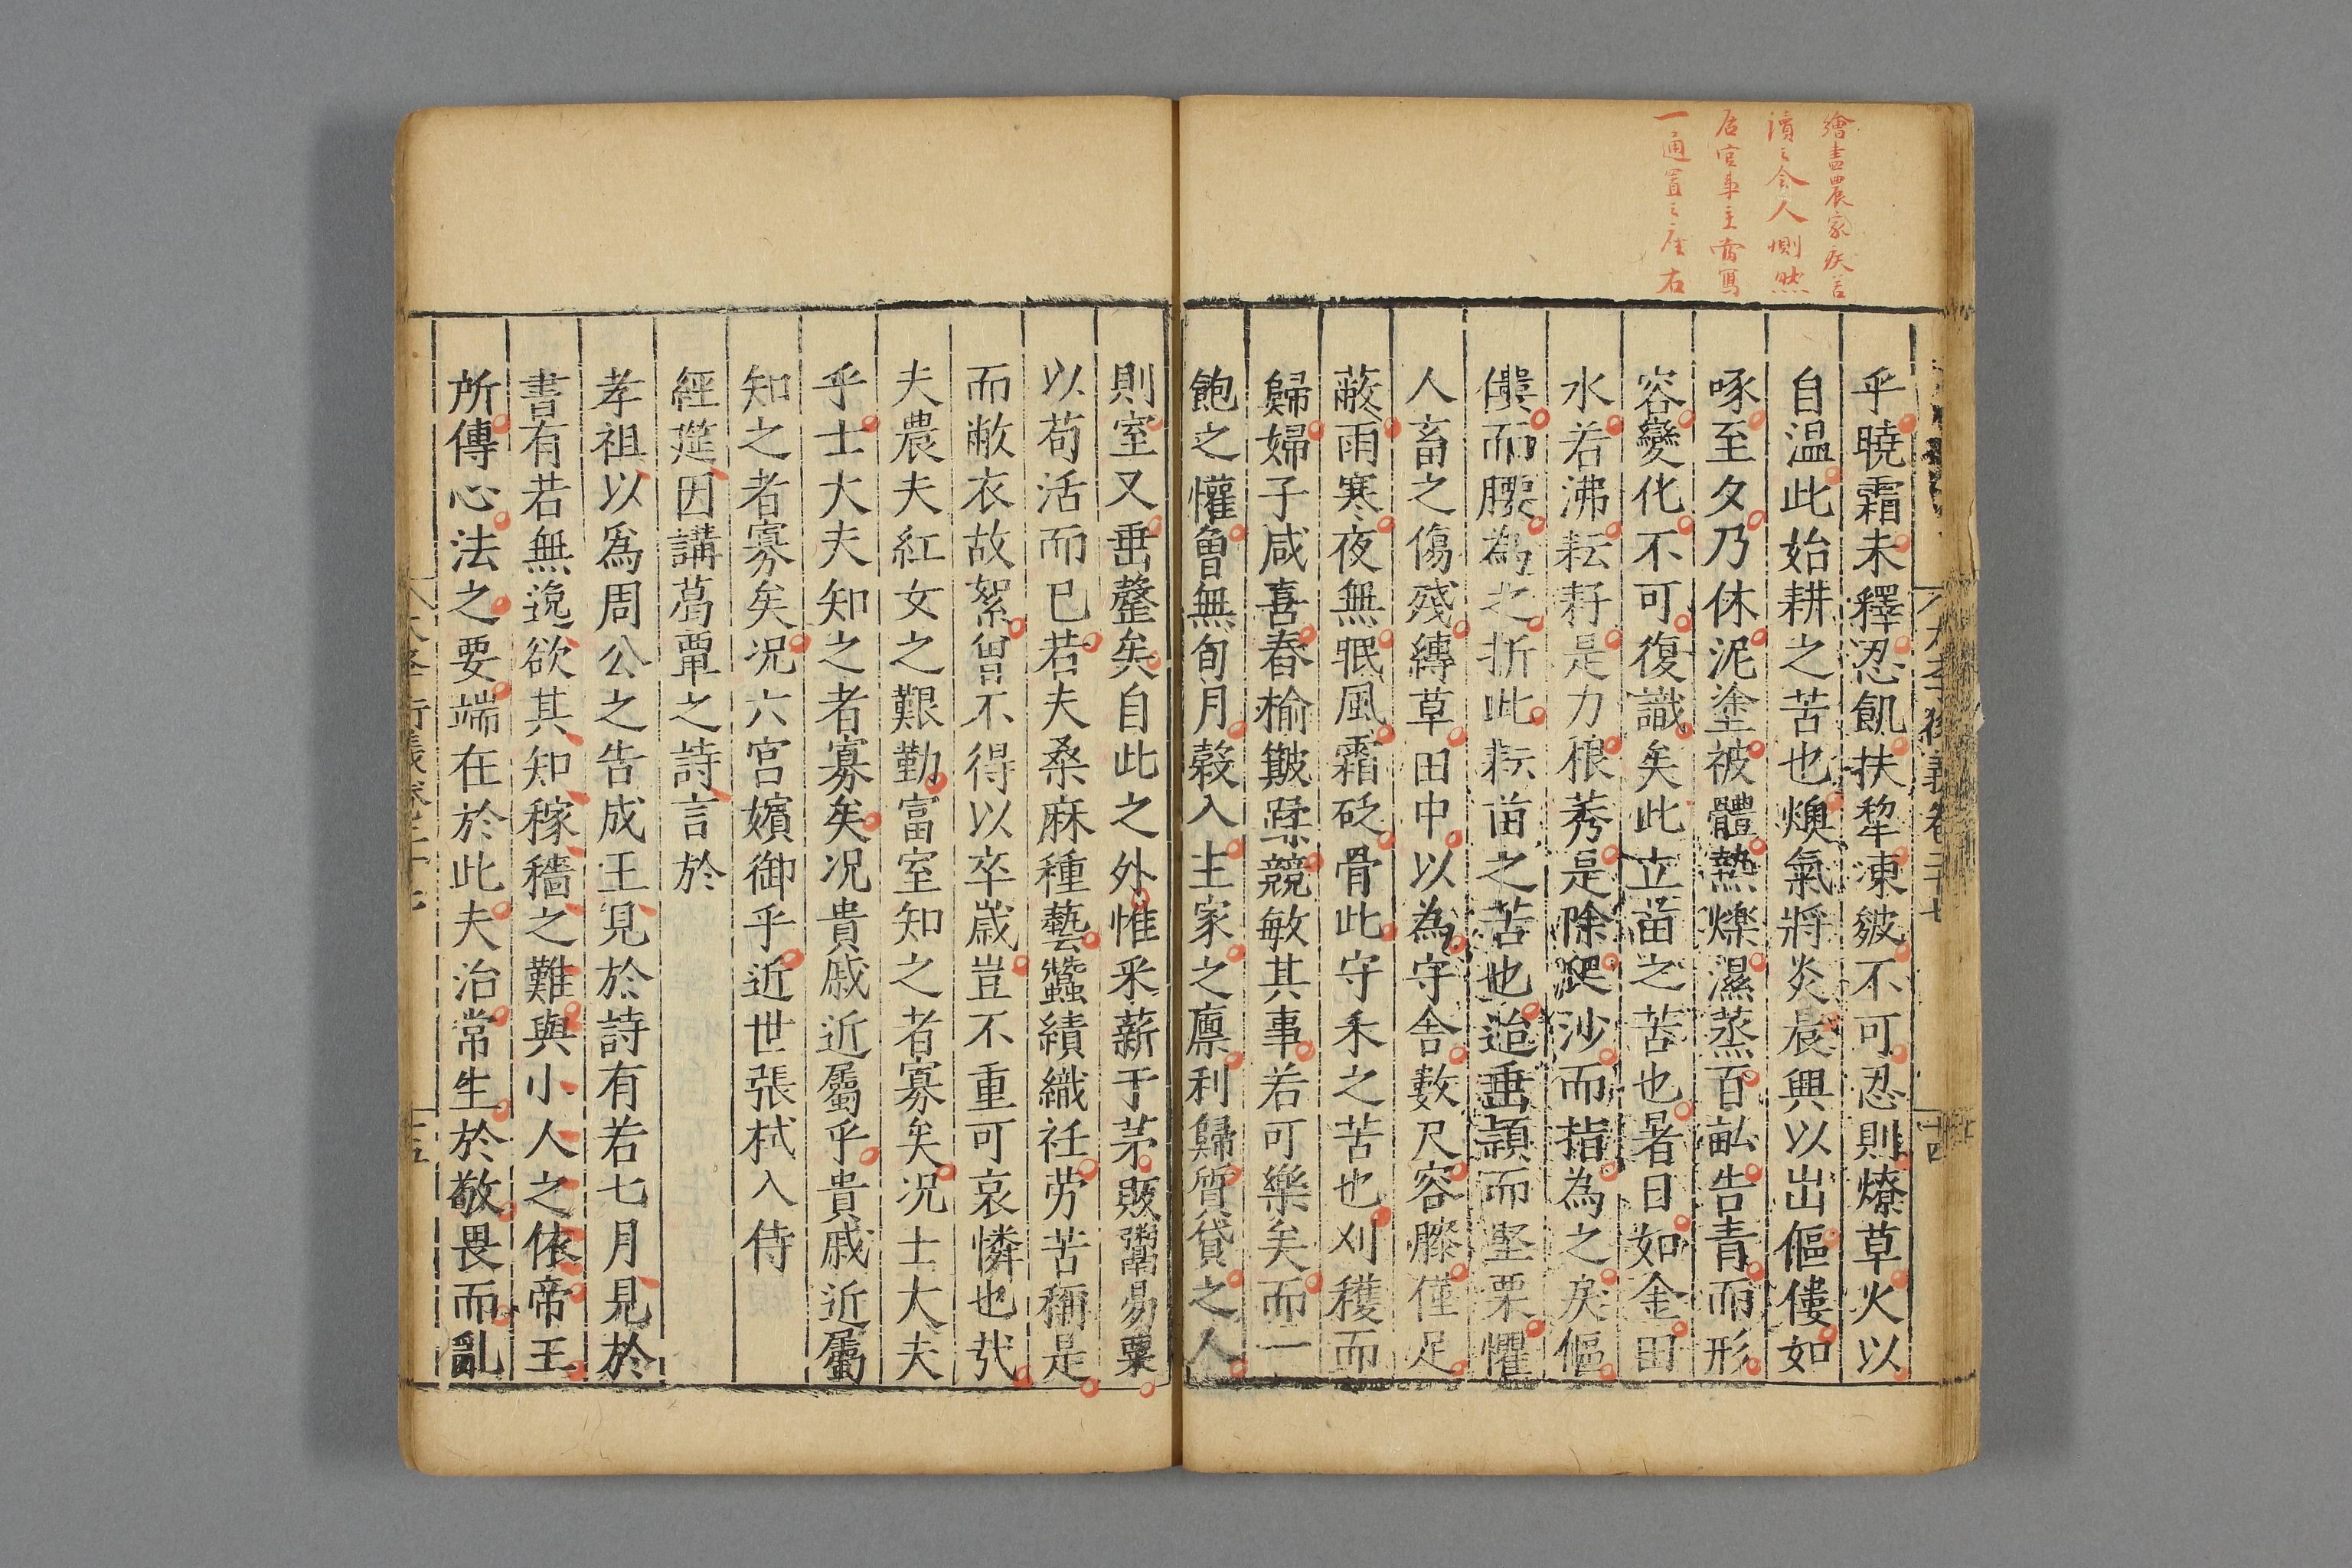 繪畫農家疾苦
讀之令人惻然
居官事主當寫
一通置之座右
大學衍義卷二十七
十四
乎曉霜未釋忍飢扶犂凍皴不可忍則燎草火以
自温此始耕之苦也燠氣將炎晨興以出傴僂如
啄至夕乃休泥塗被體熱爍濕蒸百畝告青而形
容變化不可復識矣此立苗之苦也暑日如金田
水若沸耘耔是力稂莠是除爬沙而指為之戾傴
僂而腰為之折此耘苗之苦也迨垂頴而堅栗懼
人畜之傷殘縛草田中以為守舍數尺容膝僅足
蔽雨寒夜無眠風霜砭骨此守禾之苦也刈穫而
歸婦子咸喜春揄簸蹂競敏其事若可樂矣而一
飽之懽曾無旬月穀入主家之廪利歸質貸之人
則室又垂罄矣自此之外惟采薪于茅販鬻易粟
以苟活而已若夫桑麻種藝蠶績織袵劳苦稱是
而敝衣故絮曾不得以卒歲豈不重可哀憐也㢤
夫農夫紅女之艱勤富室知之者寡矣况士大夫
乎士大夫知之者寡矣况貴戚近屬乎貴戚近屬
知之者寡矣况六宫嬪御乎近世張栻入侍
經筵因講葛覃之詩言於
孝祖以爲周公之告成王見於詩有若七月見於
書有若無逸欲其知稼穡之難與小人之依帝王
所傳心法之要端在於此夫治常生於敬畏而亂
大學衍義卷二十七
十五